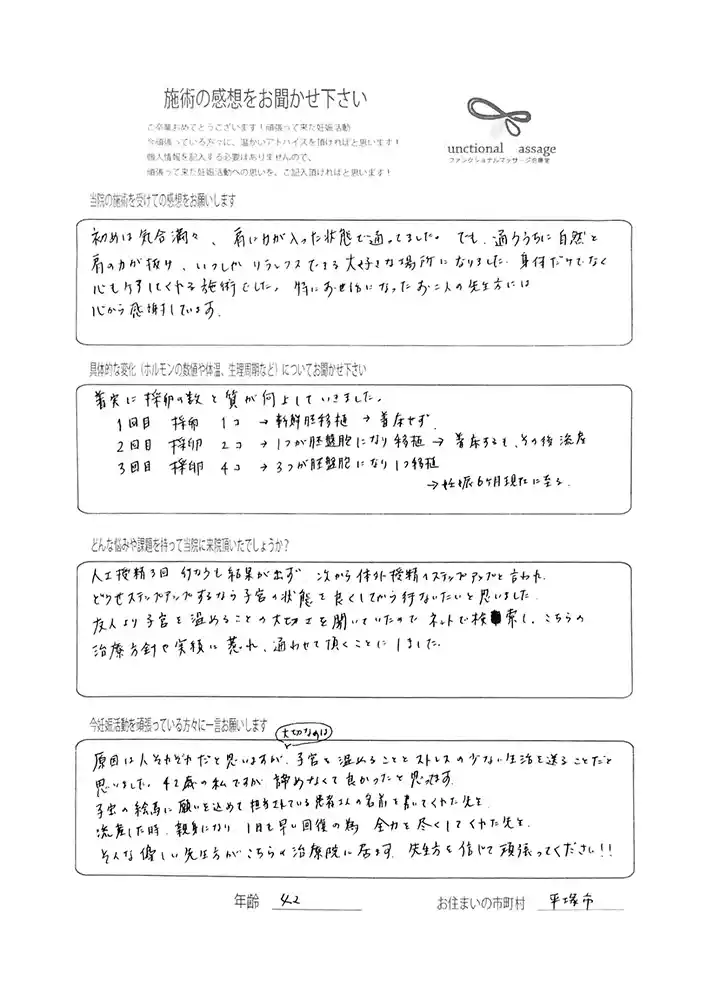 施術の感想をお聞かせ下さい
ご卒業おめでとうございます！頑張って来た妊娠活動
今頑張っている方々に、温かいアドバイスを頂ければと思います！
個人情報を記入する必要はありませんので、
頑張って来た妊娠活動への思いを、ご記入頂ければと思います！
unctional assage
ファンクショナルマッサージ治療室
当院の施術を受けての感想をお願いします
初めは気合満々、肩に力が入った状態で通ってました。でも、通ううちに自然と
肩の力が抜け、いつしかリラックスできる大好きな場所になりました。身体だけでなく
心もケアしてくれる施術でした。特にお世話になったお二人の先生方には
心から感謝しています。
具体的な変化（ホルモンの数値や体温、生理周期など）についてお聞かせ下さい
着実に採卵の数と質が向上していきました。
1回目 採卵 1コ → 新鮮胚移植 → 着床せず。
2回目 採卵 2コ → 1つが胚盤胞になり移植 → 着床するも、その後流産
3回目 採卵 4コ → 3つが胚盤胞になり1つ移植
→ 妊娠6ヶ月現在に至る。
どんな悩みや課題を持って当院に来院頂いたでしょうか？
人工授精3回行なうも結果が出ず 次から体外授精へステップアップと言われ、
どうせステップアップするなら子宮の状態を良くしてから行ないたいと思いました。
友人より子宮を温めることの大切さを聞いていたのでネットで検索し、こちらの
治療方針や実績に惹かれ、通わせて頂くことにしました。
今妊娠活動を頑張っている方々に一言お願いします
大切なのは
原因は人それぞれだと思いますが、子宮を温めることとストレスの少ない生活を送ることだと
思いました。42歳の私ですが諦めなくて良かったと思ってます。
子宝の絵馬に願いを込めて担当されている患者さんの名前を書いてくれた先生。
流産した時、親身になり 1日も早い回復の為 全力を尽くしてくれた先生。
そんな優しい先生方がこちらの治療院に居ます。先生方を信じて頑張ってください!!
年齢 42
お住まいの市町村 平塚市